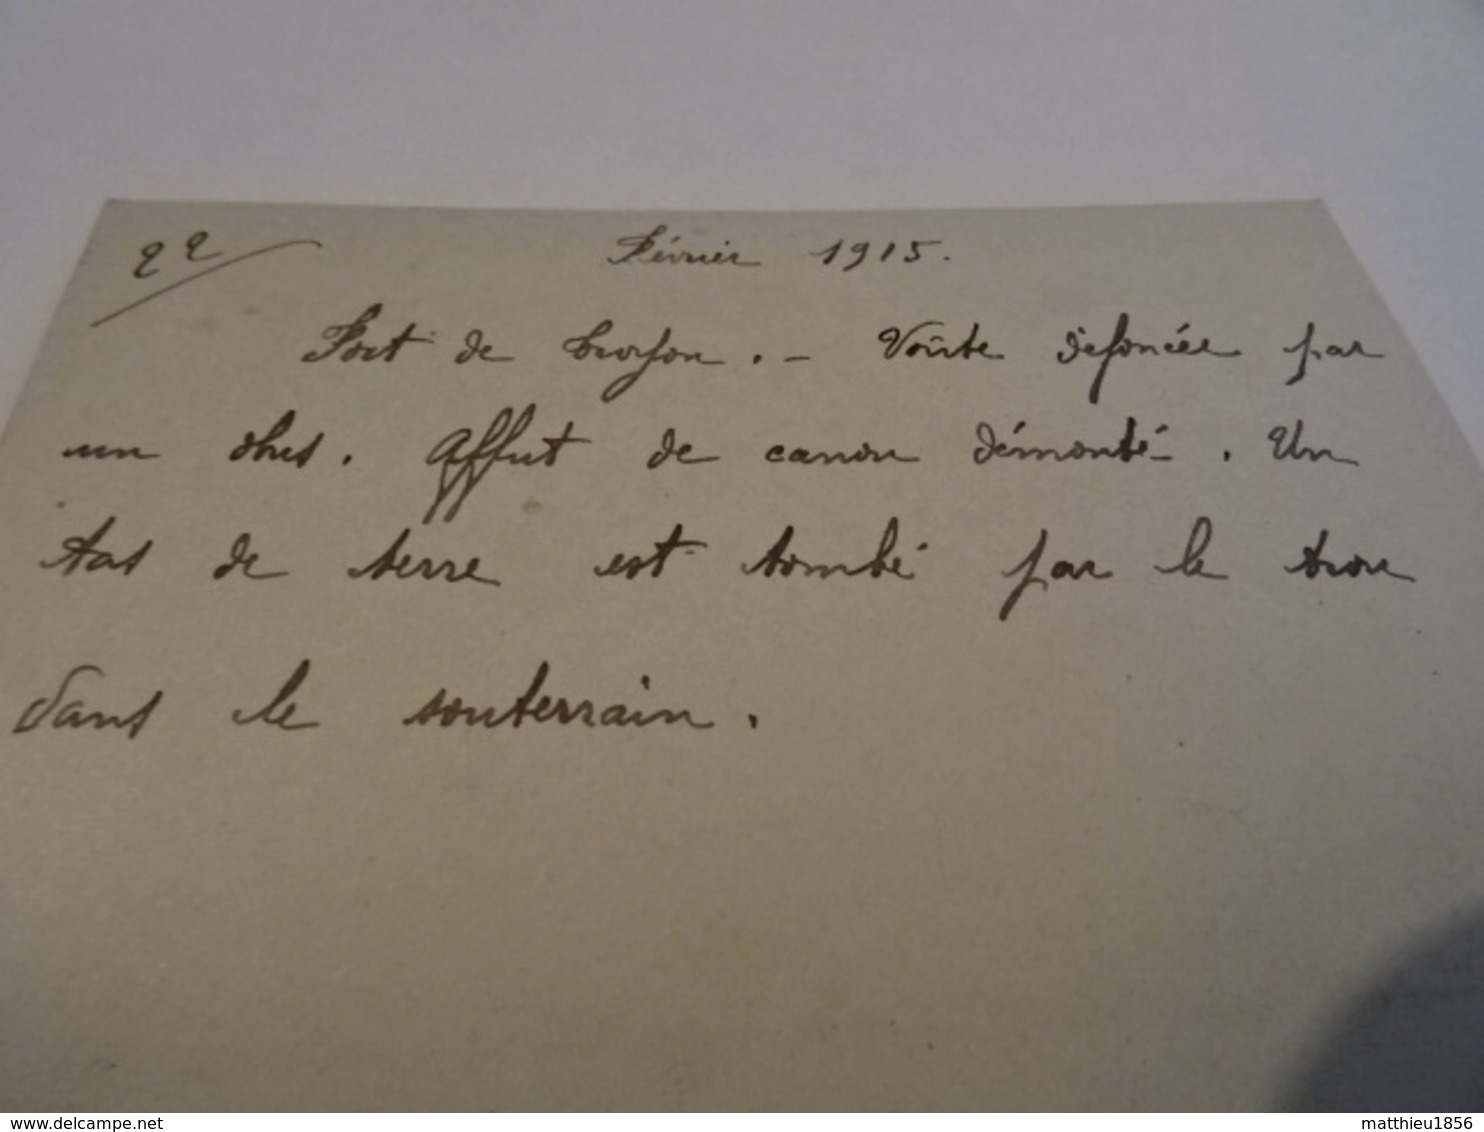 22
Février 1915.
Fort de Troyon. - Voûte défoncée par
un obus. Affut de canon démonté. Un
tas de terre est tombé par le trou
dans le souterrain.
www.delcampe.net
matthieu1856